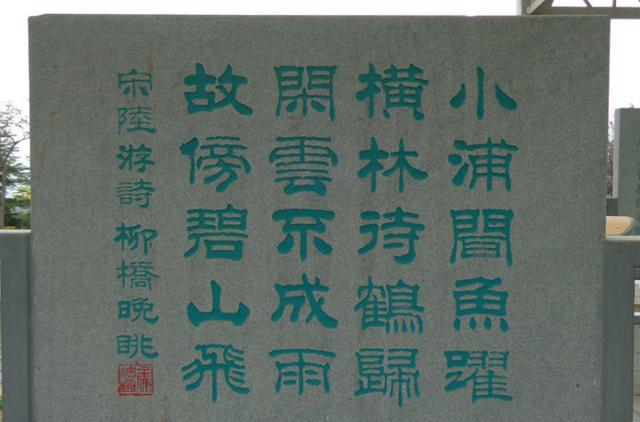 小浦聞魚躍
橫林待鶴歸
閑雲不成雨
故傍碧山飛
宋陸游詩柳橋晚眺